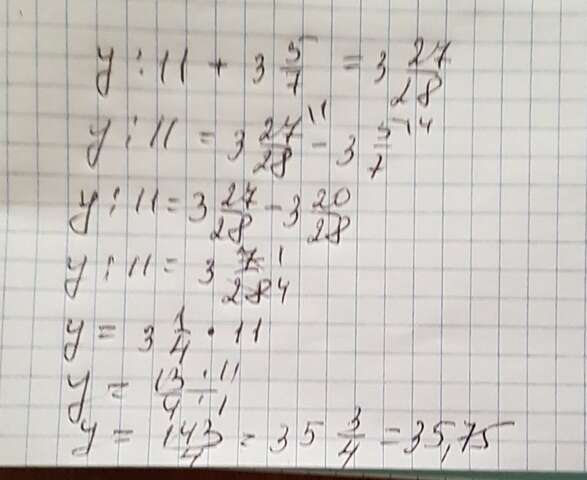 y : 11 + 3 5/7 = 3 27/28
y : 11 = 3 27/28 \1 - 3 5/7 \4
y : 11 = 3 27/28 - 3 20/28
y : 11 = 3 7/28 1/4
y = 3 1/4 · 11
y = 13/4 · 11/1
y = 143/4 = 35 3/4 = 35,75